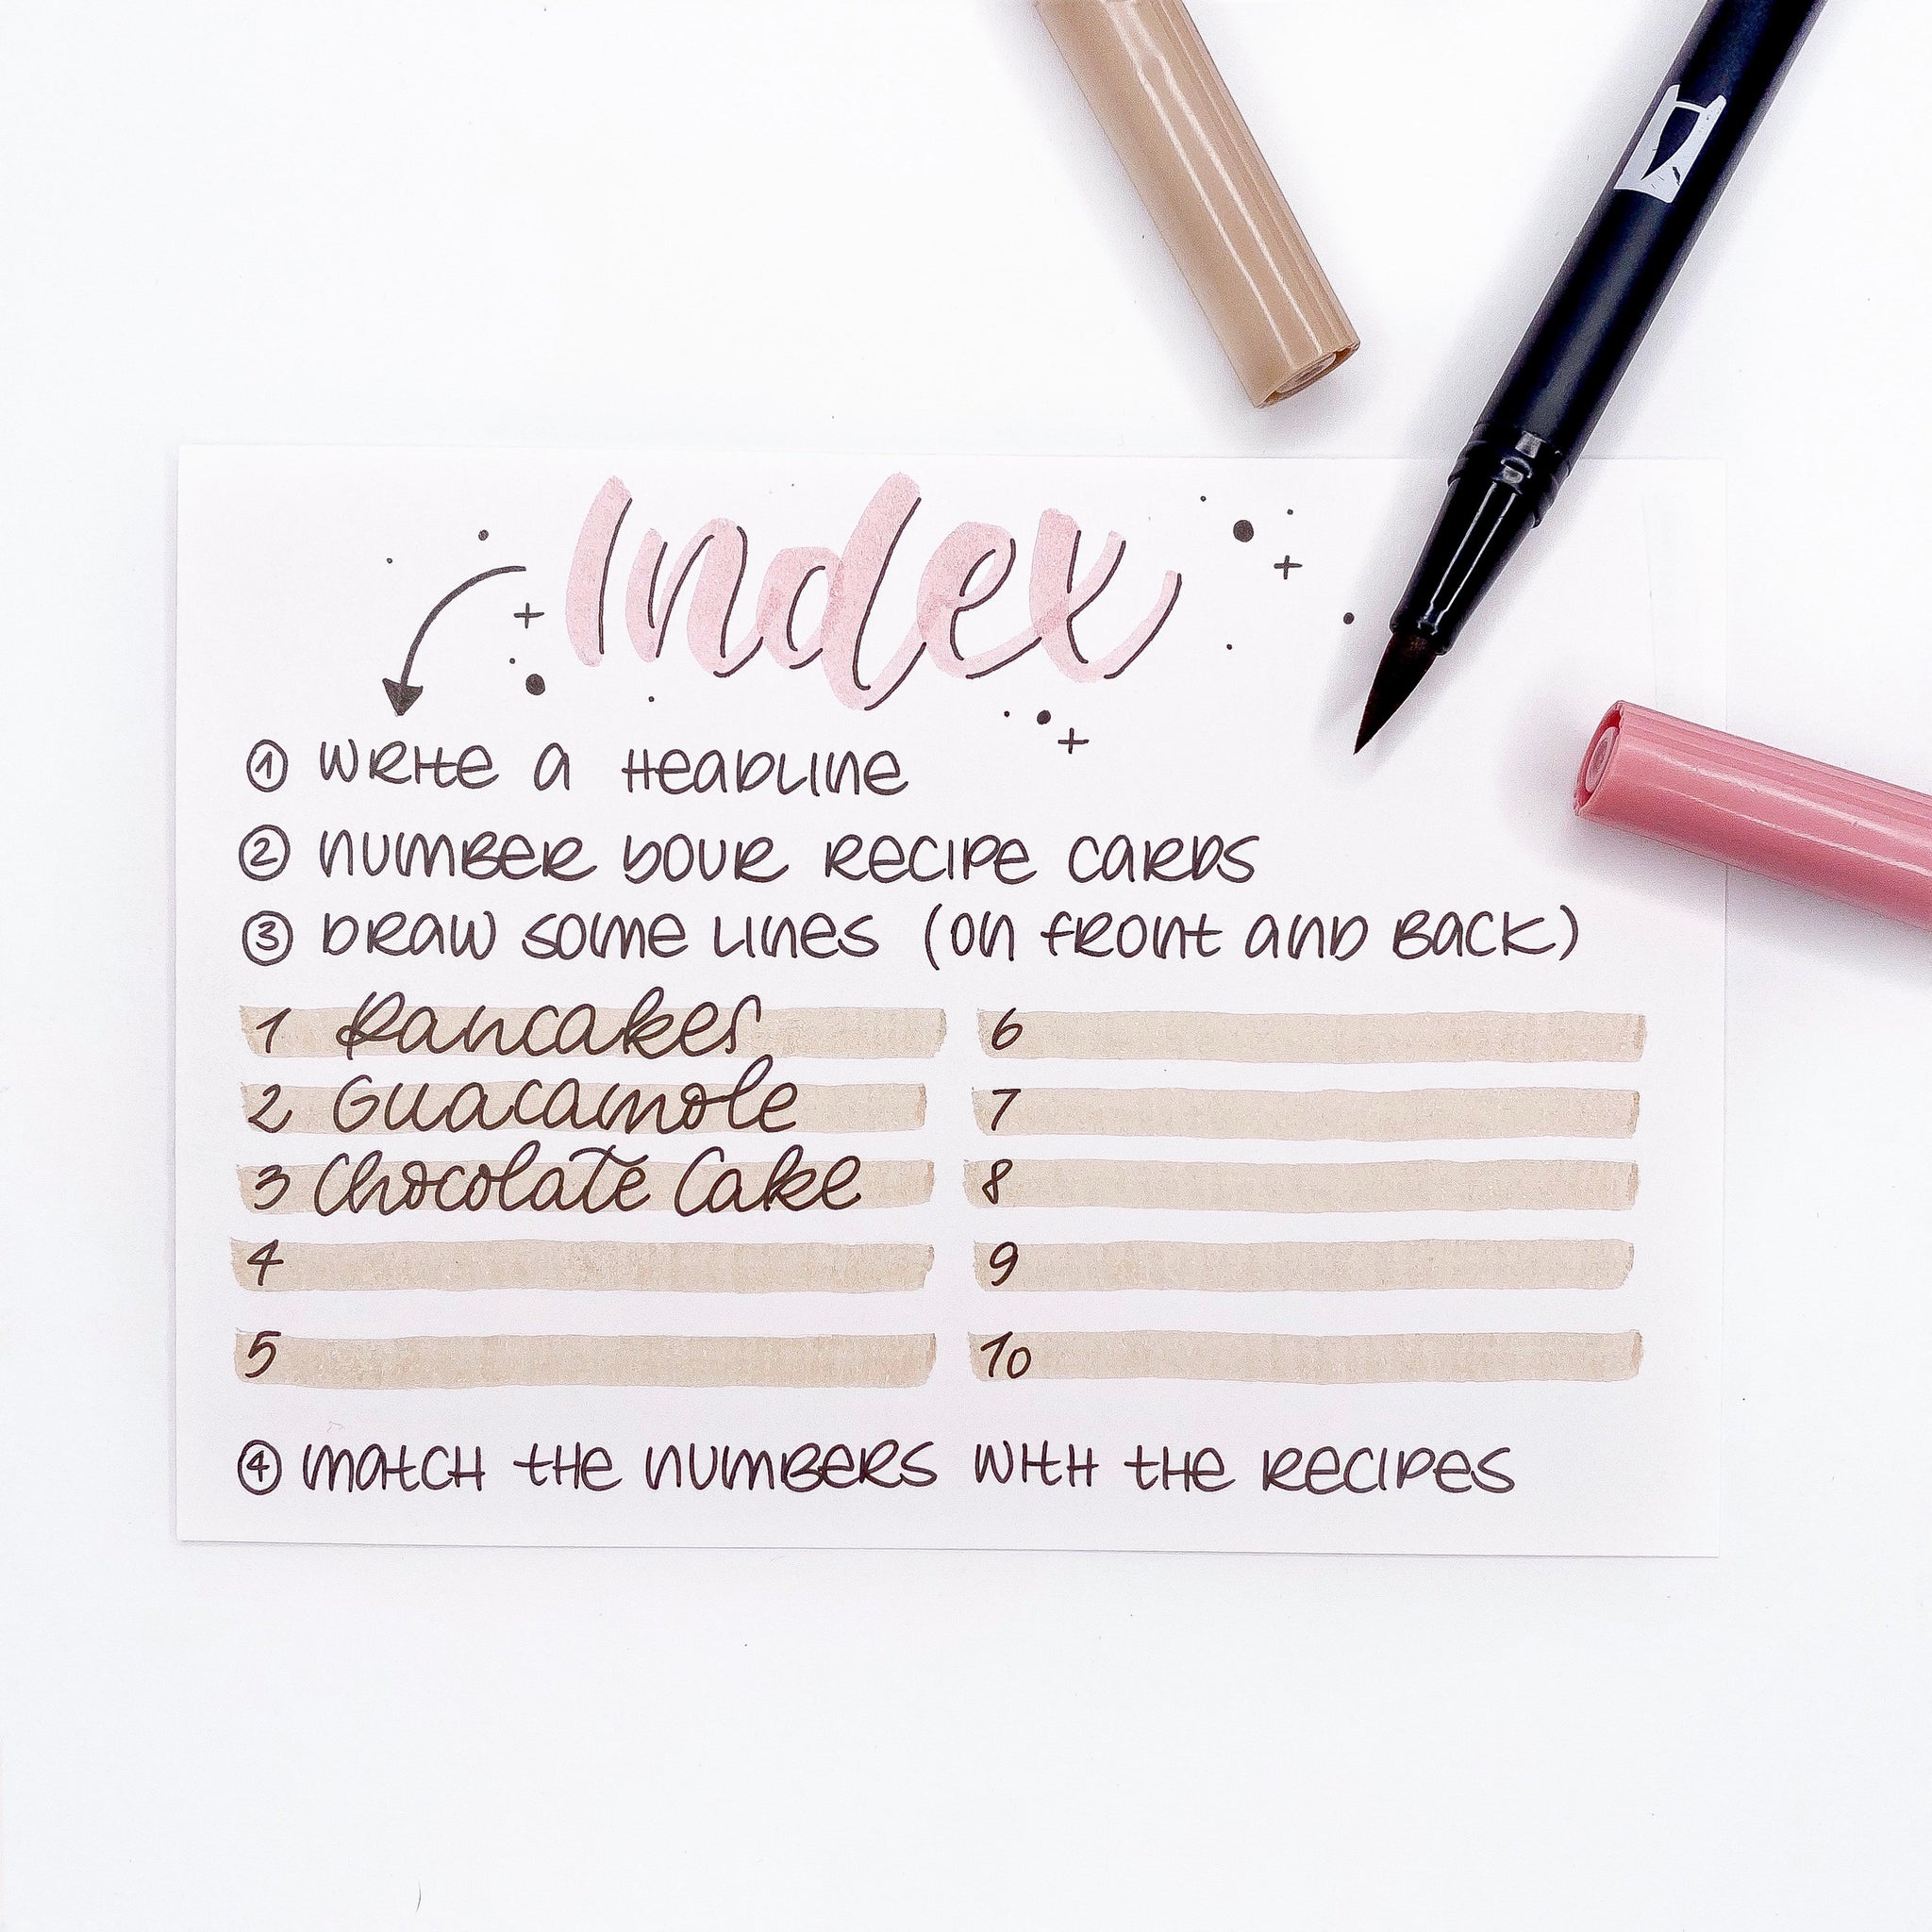 Index
① WRITE A HEADLINE
② NUMBER YOUR RECIPE CARDS
③ DRAW SOME LINES (ON FRONT AND BACK)
1 Pancakes
2 Guacamole
3 Chocolate Cake
4
5
6
7
8
9
10
④ MATCH THE NUMBERS WITH THE RECIPES